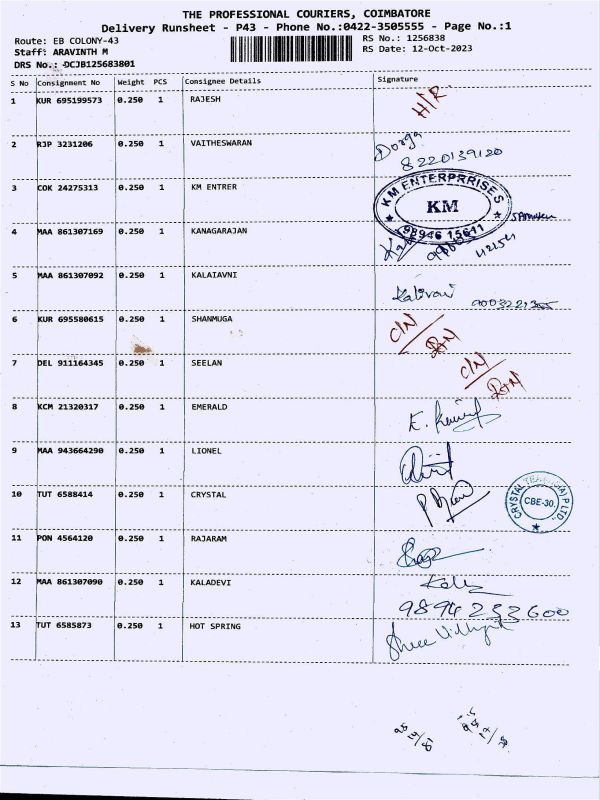 THE PROFESSIONAL COURIERS, COIMBATORE
Delivery Runsheet - P43 - Phone No.:0422-3505555 - Page No.:1
Route: EB COLONY-43 RS No.: 1256838
Staff: ARAVINTH M RS Date: 12-Oct-2023
DRS No.: DCJB125683801
S No Consignment No Weight PCS Consignee Details Signature
1 KUR 695199573 0.250 1 RAJESH H/R
2 RJP 3231206 0.250 1 VAITHESWARAN Dorga
8220139120
3 COK 24275313 0.250 1 KM ENTRER KM ENTERPRRISES
KM
98946 15611
4 MAA 861307169 0.250 1 KANAGARAJAN
5 MAA 861307092 0.250 1 KALAIAVNI
6 KUR 695580615 0.250 1 SHANMUGA C/N
7 DEL 911164345 0.250 1 SEELAN C/N
8 KCM 21320317 0.250 1 EMERALD
9 MAA 943664290 0.250 1 LIONEL
10 TUT 6588414 0.250 1 CRYSTAL CRYSTAL P LTD.
CBE-30.
11 PON 4564120 0.250 1 RAJARAM
12 MAA 861307090 0.250 1 KALADEVI
9894232600
13 TUT 6585873 0.250 1 HOT SPRING Shree